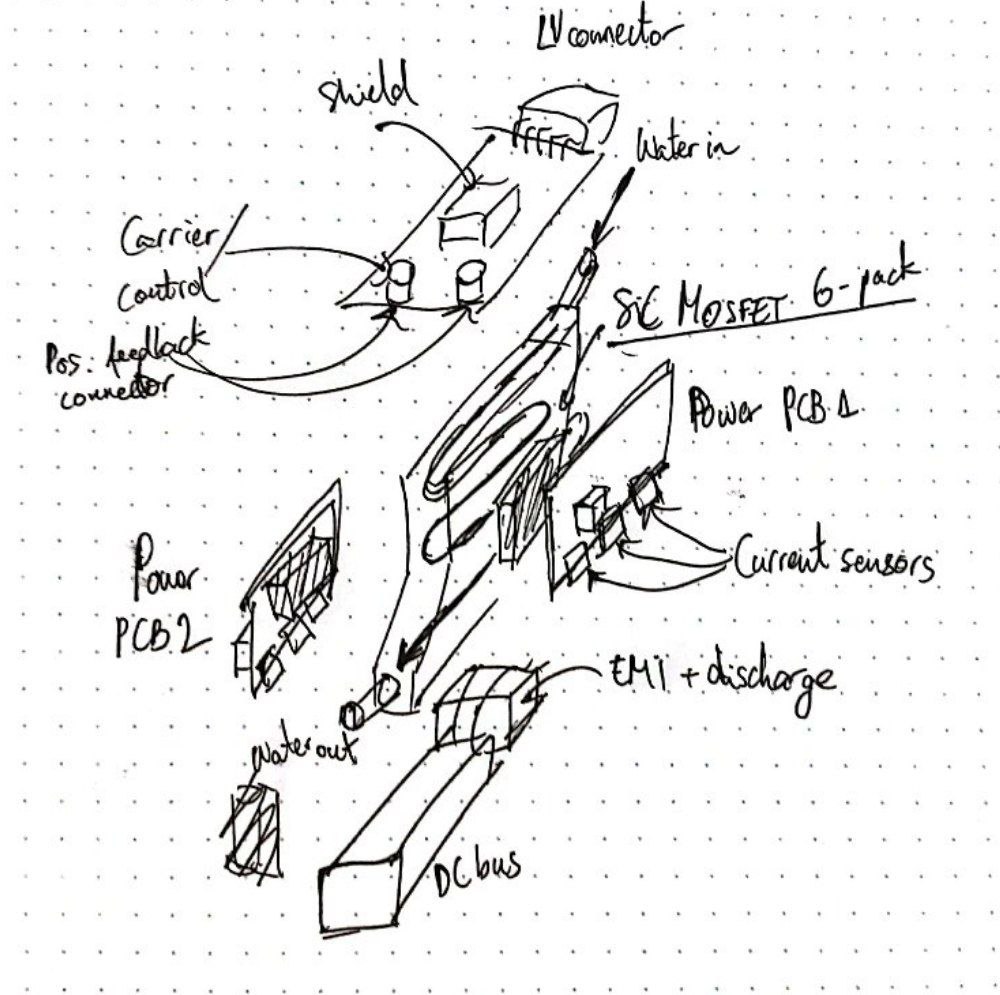 LV connector
Shield
Water in
Carrier/
control
SiC MOSFET 6-pack
Pos. feedback
connector
Power PCB 1
Power
PCB 2
Current sensors
EMI + discharge
Water out
DC bus